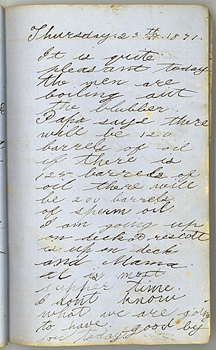 Thursday 23th 1871.
It is quite
pleasant today
the men are
boiling out
the blubber.
Papa says there
will be 120
barrels of oil
if there is
125 barrels of
oil there will
be 200 barrels
of sperm oil.
I am going up
on deck
is up on deck
and Mama.
it is most
supper time.
I dont know
what we are going
to have. good by
for today